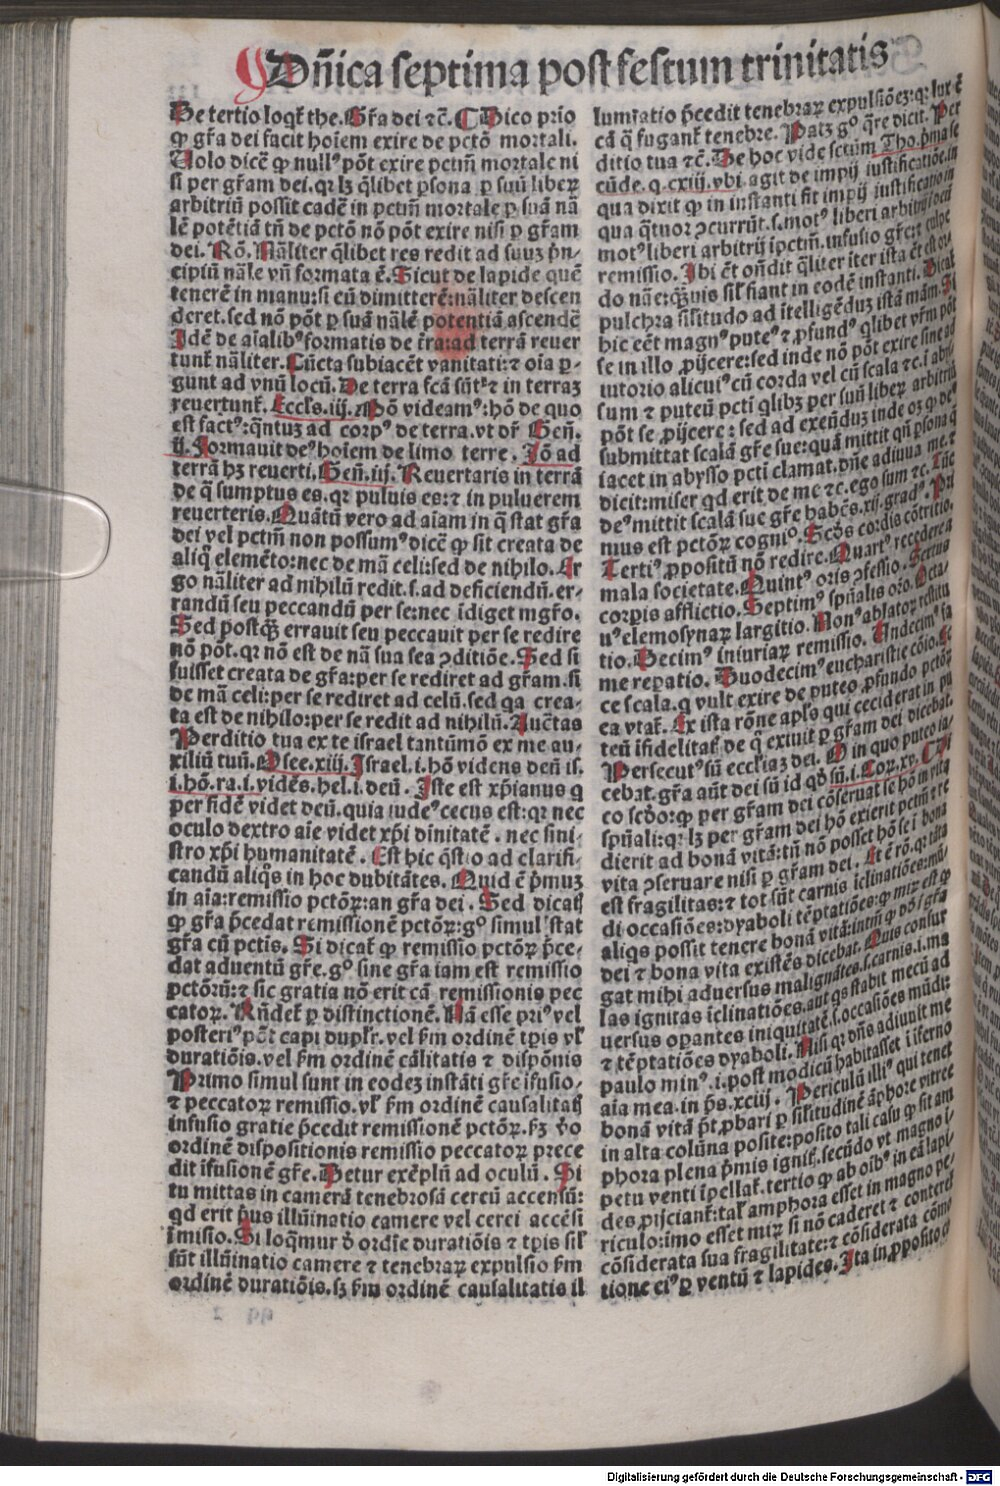 Dn̄ica septima post festum trinitatis
De tertio loqr̄ the. Gr̄a dei ⁊c̄. Dico prīo
ꝙ gr̄a dei facit hoīem exire de pctō mortali.
Uolo dicē ꝙ nullꝰ pōt exire pctm̄ mortale ni
si per gr̄am dei. qꝛ lꝫ q̄libet ꝑsona ꝑ suū liberꝝ
arbitriū possit cadē in pctm̄ mortale ꝑ suā nā
lē potētiā tn̄ de pctō nō pōt exire nisi ꝑ gr̄am
dei. Rō. Nāliter q̄libet res redit ad suuꝫ pn̄
cipiū nāle vn̄ formata ē. Sicut de lapide quē
tenerē in manu: si eū dimitterē: nāliter descen
deret. sed nō pōt ꝑ suā nālē potentiā ascendē
Idē de aīalibꝰ formatis de t̄ra: ad terrā reuer
tunt̄ nāliter. Cūcta subiacēt vanitati: ⁊ oīa ꝑ-
gunt ad vnū locū. De terra fc̄a sūt ⁊ in terraꝫ
reuertunt̄. Eccl̄s. iij. Mō videamꝰ: hō de quo
est factꝰ: q̄ntuꝫ ad corpꝰ de terra. vt dr̄ Gen̄.
ij. Formauit deꝰ hoīem de limo terre. Iō ad
terrā hꝫ reuerti. Gen̄. iij. Reuertaris in terrā
de q̄ sumptus es. qꝛ puluis es: ⁊ in puluerem
reuerteris. Quātū vero ad aīam in q̄ stat gr̄a
dei vel pctm̄ non possumꝰ dicē ꝙ sit creata de
aliq̄ elemēto: nec de mā celi: sed de nihilo. Er
go nāliter ad nihilū redit. s. ad deficiendū. er-
randū seu peccandū per se: nec īdiget mgr̄o.
Sed postqꝫ errauit seu peccauit per se redire
nō pōt. qꝛ nō est de nā sua sea ꝯditiōe. Sed si
fuisset creata de gr̄a: per se rediret ad gr̄am. si
de mā celi: per se rediret ad celū. sed qa crea-
ta est de nihilo: per se redit ad nihilū. Auc̄tas
Perditio tua ex te israel tantūmō ex me au-
xiliū tuū. Osee. xiij. Israel. i. hō videns deū is.
i. hō. ra. i. vidēs. hel. i. deū. Iste est xp̄ianus q
per fidē videt deū. quia iudeꝰ cecus est: qꝛ nec
oculo dextro aīe videt xp̄i diuinitatē. nec sini-
stro xp̄i humanitatē. Est hic q̄stio ad clarifi-
candū aliq̄s in hoc dubitātes. Quid ē pm̄uꝫ
in aīa: remissio pctōꝝ: an gr̄a dei. Sed dicas
ꝙ gr̄a p̄cedat remissionē pctōꝝ: gͦ simul stat
gr̄a cū pctis. Si dicat̄ ꝙ remissio pctōꝝ p̄ce-
dat aduentū gr̄e. gͦ sine gr̄a iam est remissio
pctōrū: ⁊ sic gratia nō erit cā remissionis pec
catoꝝ. Rn̄det̄ ꝑ distinctionē. Nā esse priꝰ vel
posteriꝰ pōt capi duplr̄. vel ẜm ordinē tp̄is vl̓
duratiōis. vel ẜm ordinē cālitatis ⁊ dispōnis
Primo simul sunt in eodeꝫ instāti gr̄e īfusio,
⁊ peccatoꝝ remissio. vl̓ ẜm ordinē causalitatꝭ
infusio gratie p̄cedit remissionē pctōꝝ. ẜꝫ v̓o
ordinē dispositionis remissio peccatoꝝ prece
dit īfusionē gr̄e. Detur exēplū ad oculū. Si
tu mittas in camerā tenebrosā cereū accensū:
qd erit pͥus illūinatio camere vel cerei accēsi
īmisio. Si loq̄mur d̓ ordīe duratiōis ⁊ tp̄is sil̓
sūt illūinatio camere ⁊ tenebraꝝ expulsio ẜm
ordinē duratiōis. sꝫ ẜm ordinē causalitatis il
lumīatio p̄cedit tenebraꝝ expulsiōeꝫ: qꝛ lux ē
cā q̄ fugant̄ tenebre. Patꝫ gͦ q̄re dicit. Per
ditio tua ⁊c̄. De hoc vide sctūm Tho. pͥma se
cūde. q. cxiij. vbi agit de impij iustificatiōe. in
qua dixit ꝙ in instanti fit impij iustificatio in
qua q̄tuor ꝯcurrūt. s. motꝰ liberi arbitrij ī deū
motꝰ liberi arbitrij ī pctm̄. infusio gr̄e ⁊ culpe
remissio. Ibi ēt on̄dit q̄liter iter ista ēt est or-
do nāe: qꝫuis sil̓ fiant in eodē instanti. Dicat̄
pulchra sil̓itudo ad ītelligēduꝫ istā mām. Si
hic eēt magnꝰ puteꝰ ⁊ ꝓfundꝰ q̄libet vr̄m pōt
se in illo ꝓijcere: sed inde nō pōt exire sine ad
iutorio alicuiꝰ cū corda vel cū scala ⁊c. ī abys
sum ⁊ puteū pcti qlibꝫ per suū liberꝝ arbitriū
pōt se ꝓijcere: sed ad exeūduꝫ inde oꝫ ꝙ deꝰ
submittat scalā gr̄e sue: quā mittit qn̄ ꝑsona q̄
iacet in abysso pcti clamat. dn̄e adiuua me. ⁊
dicit: miser qd erit de me ⁊c. ego sum ⁊c. Tūc
deꝰ mittit scalā sue gr̄e habēs. xij. gradꝰ. Pri
mus est pctōꝝ cognitio. Scd̄s cordis cōtritio.
Tertiꝰ ꝓpositū nō redire. Quartꝰ recedere a
mala societate. Quintꝰ oris ꝯfessio. Sextus
corꝑis afflictio. Septimꝰ spūalis orō. Octa-
uꝰ elemosynaꝝ largitio. Nonꝰ ablatoꝝ restitu
tio. Decimꝰ iniuriaꝝ remissio. Undecimꝰ fa
me reꝑatio. Duodecimꝰ eucharistie cōio. Ec
ce scala. q vult exire de puteo ꝓfundo pctōꝝ
ea vtat̄. Ex ista rōne apl̄s qui ceciderat in pu
teū īfidelitatꝭ de q̄ exiuit ꝑ gr̄am dei dicebat.
Persecutꝰ sū eccl̄iaꝫ dei. O in quo puteo ia-
cebat. gr̄a aūt dei sū id qd̄ sū. i. Cor. xv. Cꝛi
co scd̄o: ꝙ per gr̄am dei cōseruat se hō in vita
spūali: qꝛ lꝫ per gr̄am dei hō exierit pctm̄ ⁊ re
dierit ad bonā vitā: tn̄ nō posset hō se ī bona
vita ꝯseruare nisi ꝑ gr̄am dei. Et ē rō. qꝛ tāta
est fragilitas: ⁊ tot sūt carnis īclinatiōes: mū
di occasiōes: dyaboli tēptatiōes: ꝙ miꝝ est ꝙ
aliqs possit tenere bonā vitā: intm̄ ꝙ dō gr̄a
dei ⁊ bona vita existēs dicebat. Quis consur
gat mihi aduersus malignātes. s. carnis. i. ma
las ignitas īclinatiōes. aut qs stabit mecū ad
uersus oꝑantes iniquitatē. s. occasiōes mūdi:
⁊ tēptatiōes dyaboli. Nisi qꝛ dn̄s adiuuit me
paulo minꝰ. i. post modicū habitasset ī īferno
aīa mea. in ps̄. xciij. Periculū illiꝰ qui tenet
bonā vitā pt̄ ꝓbari ꝑ sil̓itudinē āphore vitree
in alta colūna posite: posito tali casu ꝙ sit am
phora plena pͥmis ignitꝭ. secūdo vt magno ī-
petu venti īpellat̄. tertio ꝙ ab oībꝰ in eā lapi-
des ꝓijciant̄: tal̓ amphora esset in magno pe-
riculo: imo esset miꝝ si nō caderet ⁊ contereret̄
cōsiderata sua fragilitate: ⁊ cōsiderata cōmo
tione eiꝰ ꝑ ventū ⁊ lapides. Ita in ꝓposito cō
Digitalisierung gefördert durch die Deutsche Forschungsgemeinschaft - DFG